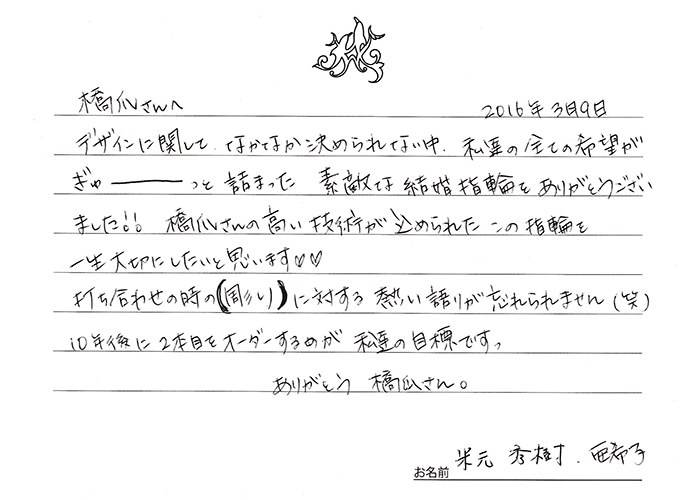 橋爪さんへ 2016年3月9日
デザインに関して、なかなか決められない中、私達の全ての希望が
ぎゅ―――っと詰まった 素敵な結婚指輪をありがとうござい
ました!! 橋爪さんの高い技術が込められたこの指輪を
一生大切にしたいと思います♡♡
打ち合わせの時の(彫り)に対する熱い語りが忘れられません(笑)
10年後に2本目をオーダーするのが私達の目標ですっ
ありがとう 橋爪さん。
お名前 米元 秀樹、亜希子